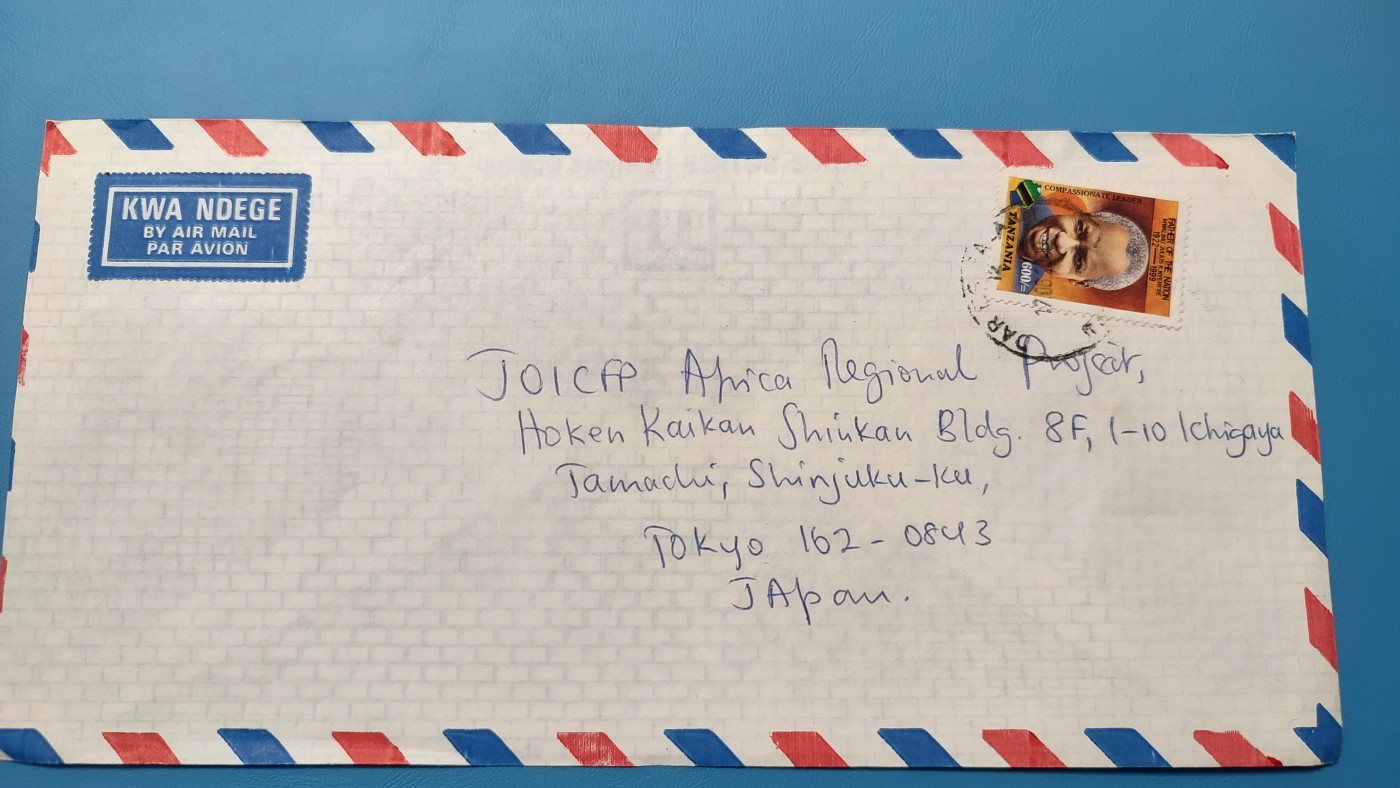 KWA NDEGE
BY AIR MAIL
PAR AVION
COMPASSIONATE LEADER
TANZANIA
600/=
FATHER OF THE NATION
MWALIMU JULIUS K. NYERERE
1922 — 1999
DAR
JOICFP Africa Regional Project,
Hoken Kaikan Shinkan Bldg. 8F, 1-10 Ichigaya
Tamachi, Shinjuku-ku,
Tokyo 162-0843
JApan.